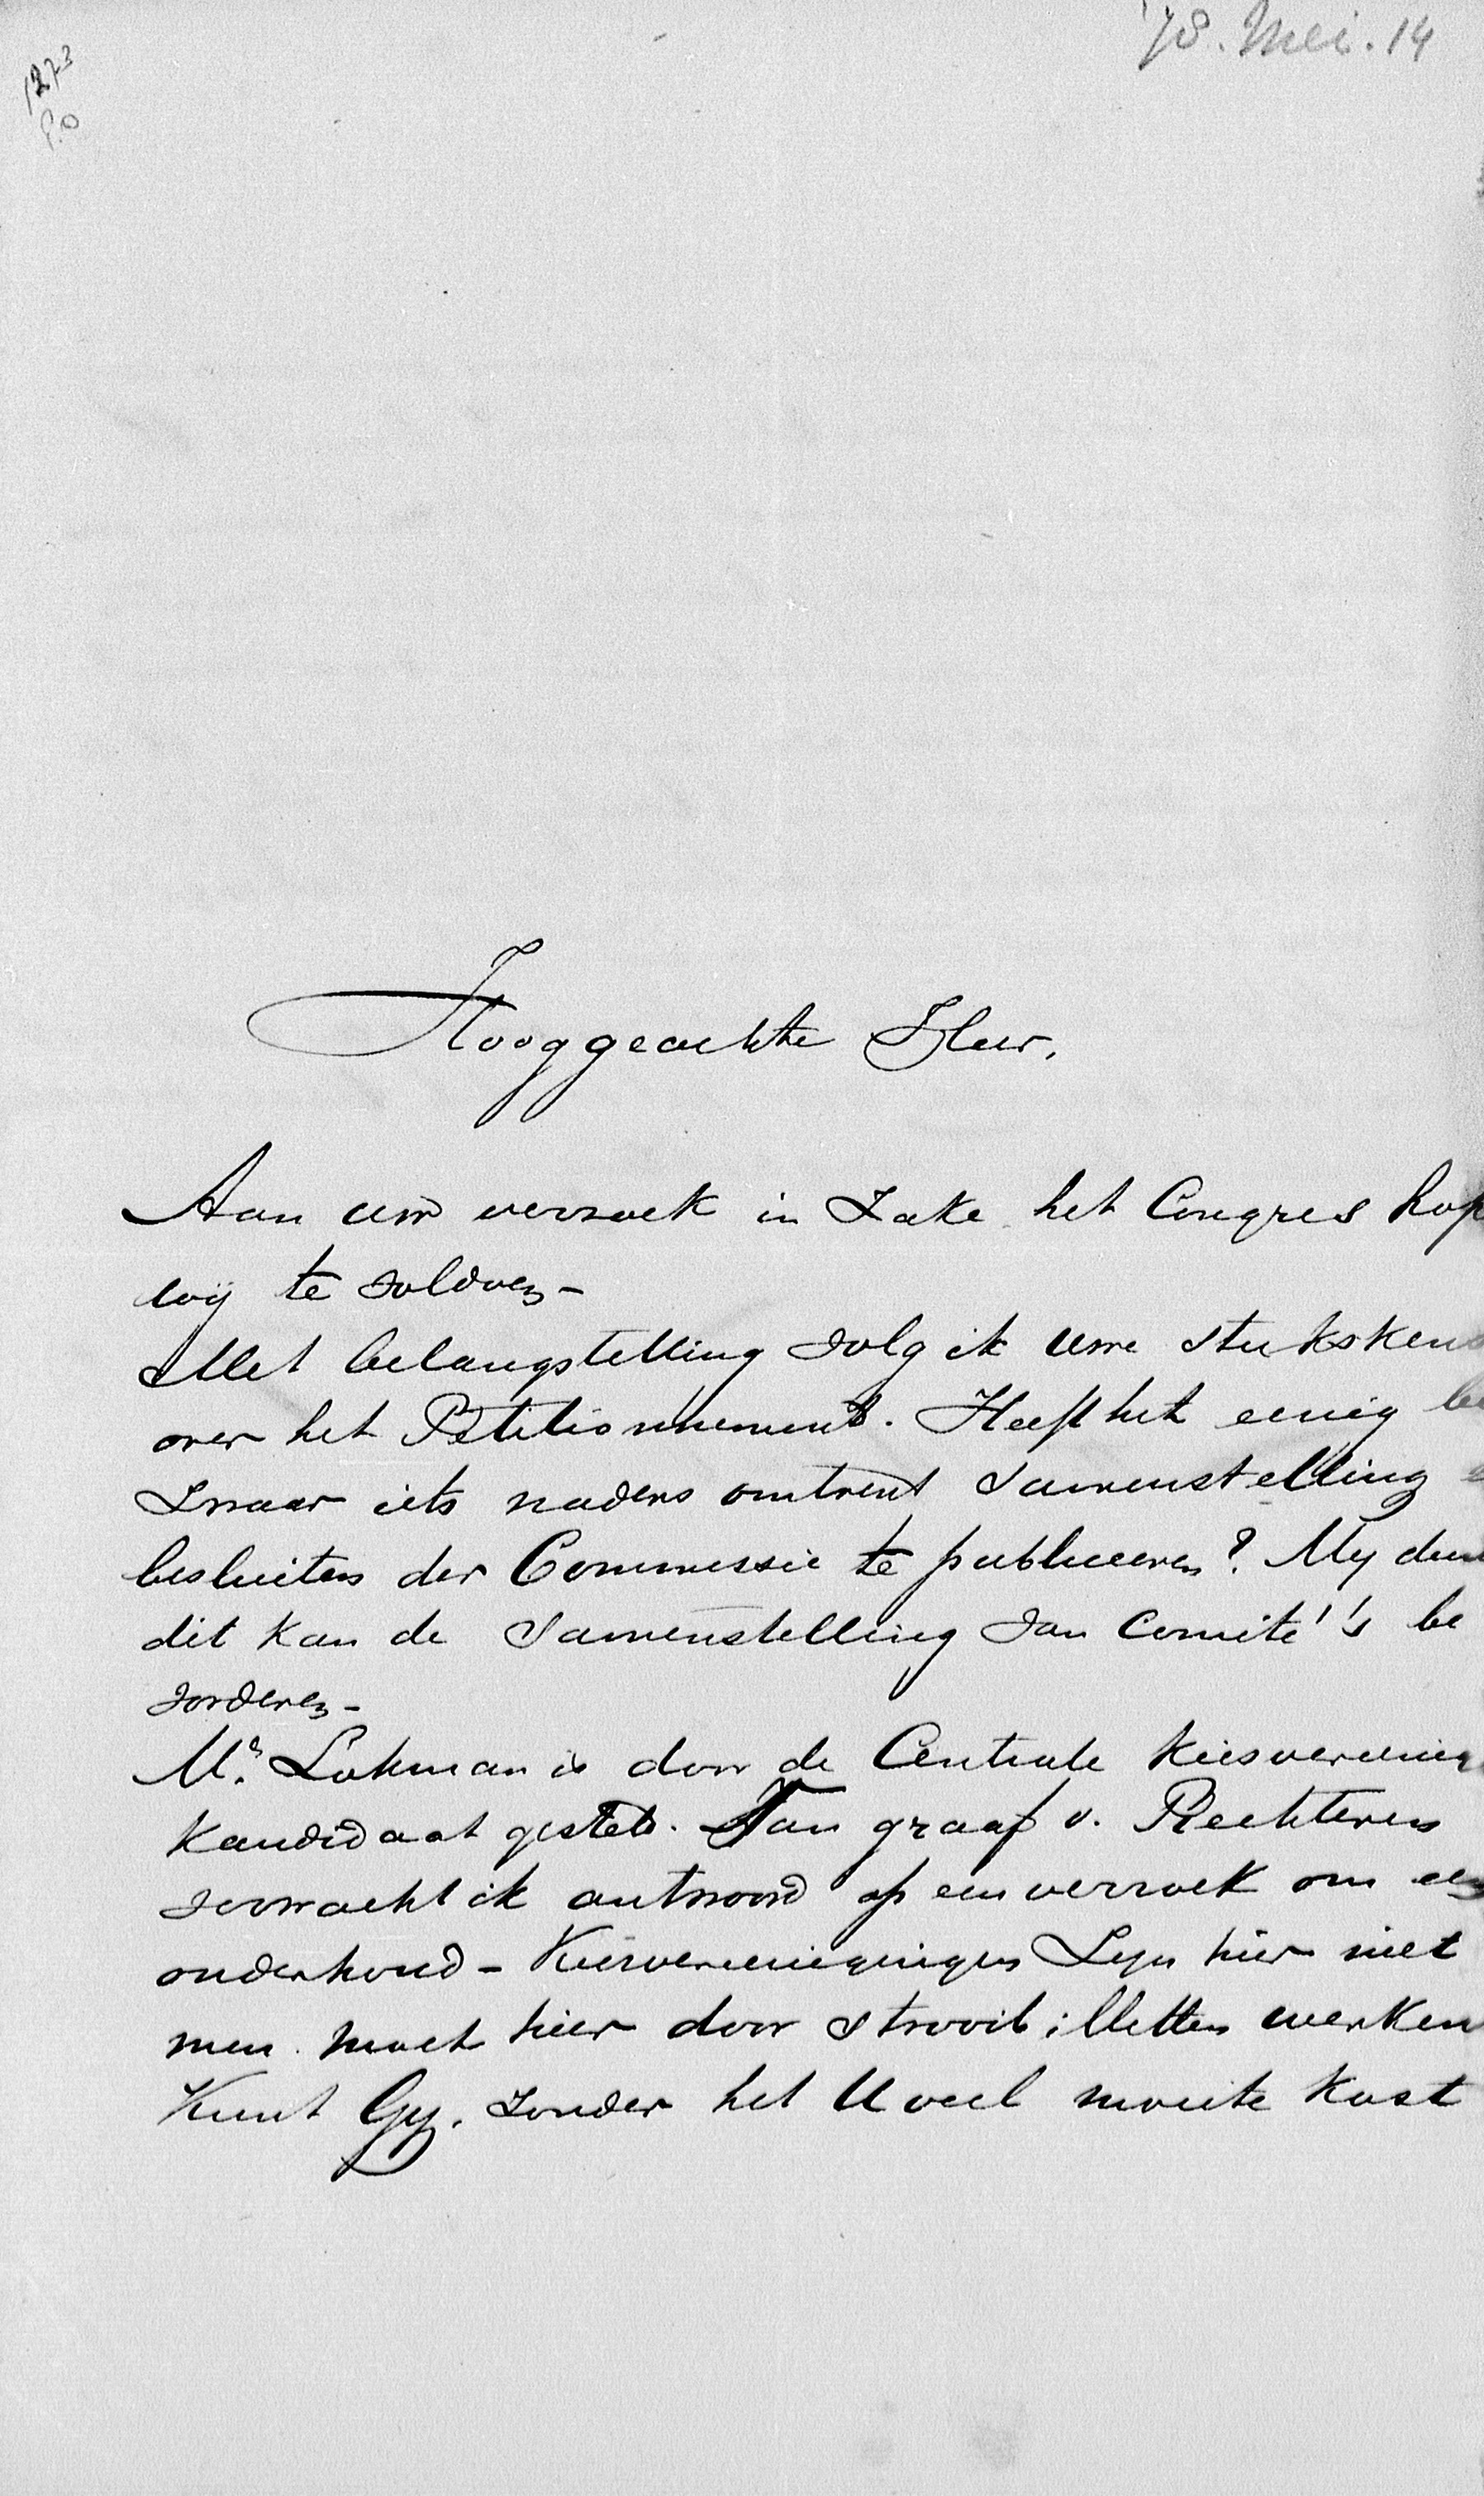 '78. Mei. 14
1273
P.O
Hooggeachte Heer,
Aan uw verzoek in zake het Congres hop
wij te voldoen -
Met belangstelling volg ik uwe stukskens
over het Petitionnement. Heeft het eenig be
zwaar iets naders omtrent samenstelling
besluiten der Commissie te publiceeren? My dun
dit kan de samenstelling van Comité's be
vorderen -
Mr. Lohman is door de Centrale Kiesvereenig
kandidaat gesteld. Van graaf v. Rechteren
verwacht ik antwoord op een verzoek om een
onderhoud - Kiesvereenigingen zyn hier niet
men moet hier door strooibilletten werken
Kunt Gy, zonder het U veel moeite kost